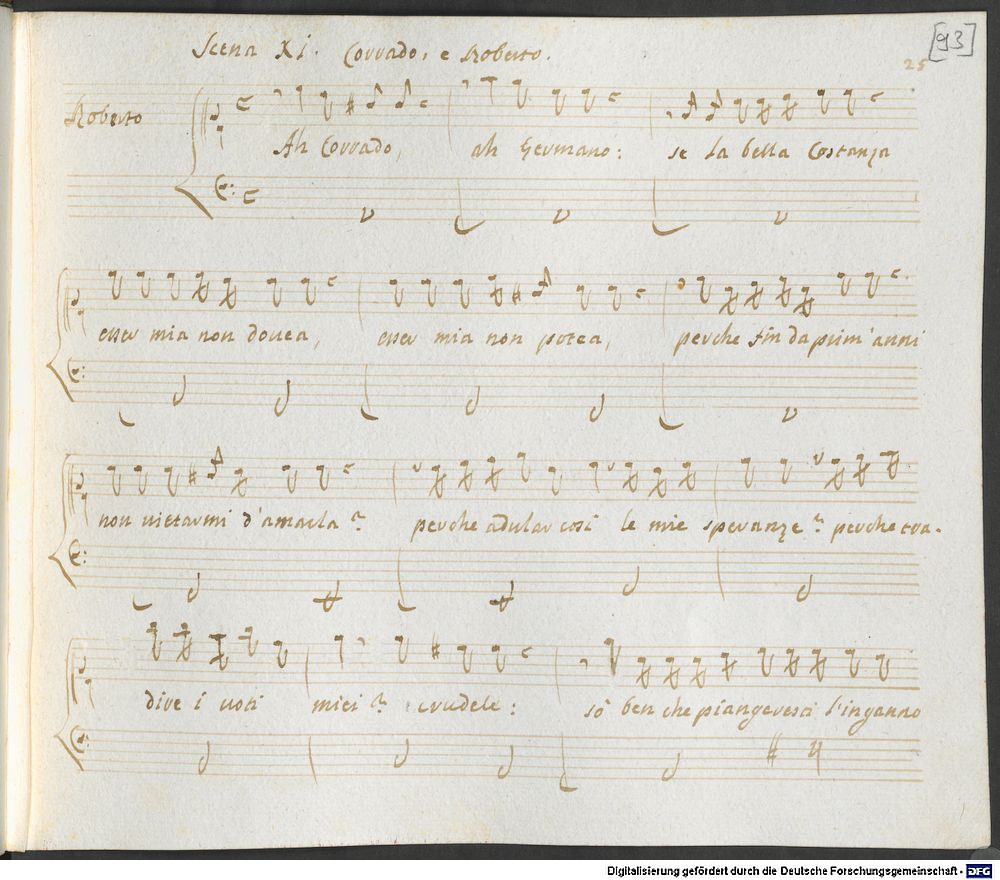 [93]
Scena XI. Corrado, e Roberto.
25
Roberto
Ah Corrado, ah Germano: se la bella Costanza
esser mia non douea, esser mia non potea, perche fin da prim'anni
non uietarmi d'amarla? perche adular cosi le mie speranze? perche tra-
dire i uoti miei? crudele: sò ben che piangeresti l'inganno
Digitalisierung gefördert durch die Deutsche Forschungsgemeinschaft - DFG